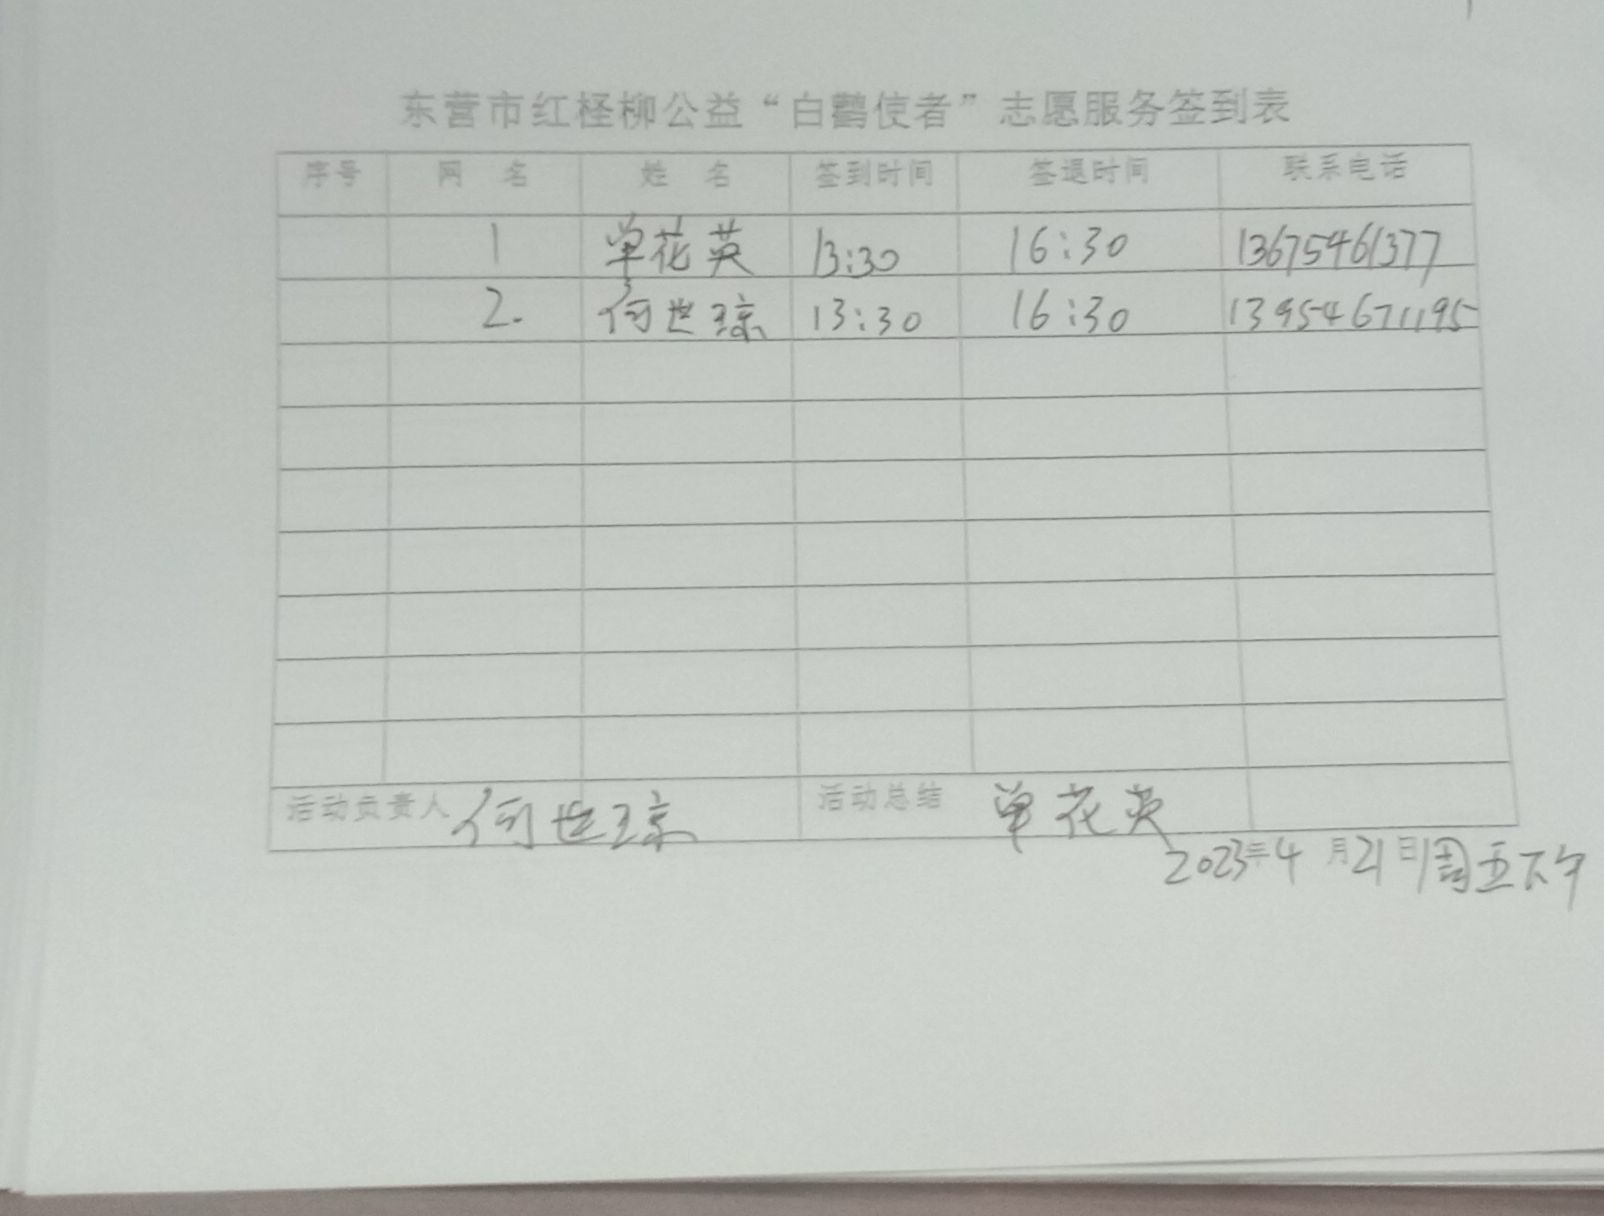 东营市红柽柳公益“白鹳使者”志愿服务签到表
序号 网 名 姓 名 签到时间 签退时间 联系电话
1 单花英 13:30 16:30 13675461377
2. 何世琼 13:30 16:30 13954671195
活动负责人 何世琼 活动总结 单花英
2023年4月21日周五下午